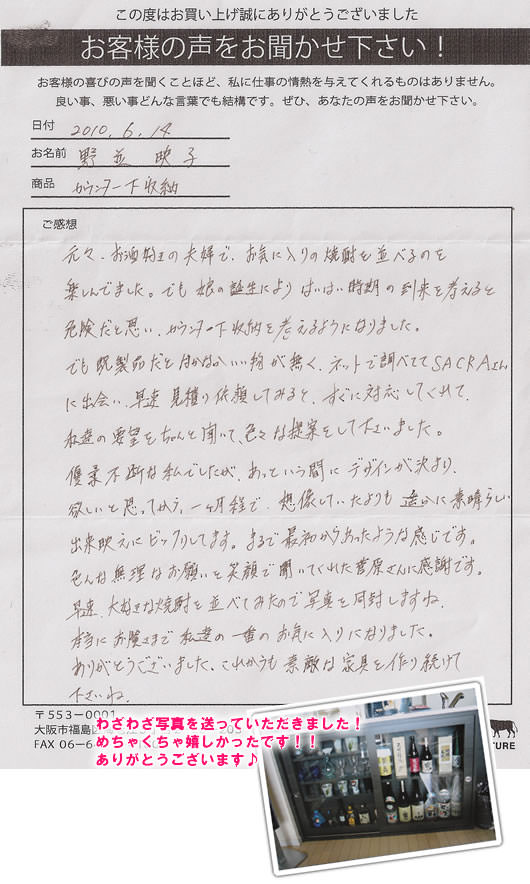 この度はお買い上げ誠にありがとうございました
お客様の声をお聞かせ下さい！
お客様の喜びの声を聞くことほど、私に仕事の情熱を与えてくれるものはありません。
良い事、悪い事どんな言葉でも結構です。ぜひ、あなたの声をお聞かせ下さい。
日付 2010.6.14
お名前 野並 映子
商品 カウンター下収納
ご感想
元々、お酒好きの夫婦で、お気に入りの焼酎を並べるのを
楽しんでました。でも娘の誕生によりはいはい時期の到来を考えると
危険だと思い、カウンター下収納を考えるようになりました。
でも既製品だとなかなかいい物が無く、ネットで調べててSACRAさん
に出会い、早速見積り依頼してみると、すぐに対応してくれて、
私達の要望をちゃんと聞いて、色々な提案をして下さいました。
優柔不断な私でしたが、あっという間にデザインが決まり、
欲しいと思ってから、一ヶ月程で、想像していたよりも遥かに素晴らしい
出来映えにビックリしてます。まるで最初からあったような感じです。
色んな無理なお願いを笑顔で聞いてくれた菅原さんに感謝です。
早速、大好きな焼酎を並べてみたので写真を同封しますね。
本当にお陰さまで私達の一番のお気に入りになりました。
ありがとうございました、これからも素敵な家具を作り続けて
下さいね。
〒553-0001
大阪市福島区
FAX 06-6
わざわざ写真を送っていただきました！
めちゃくちゃ嬉しかったです！！
ありがとうございます♪